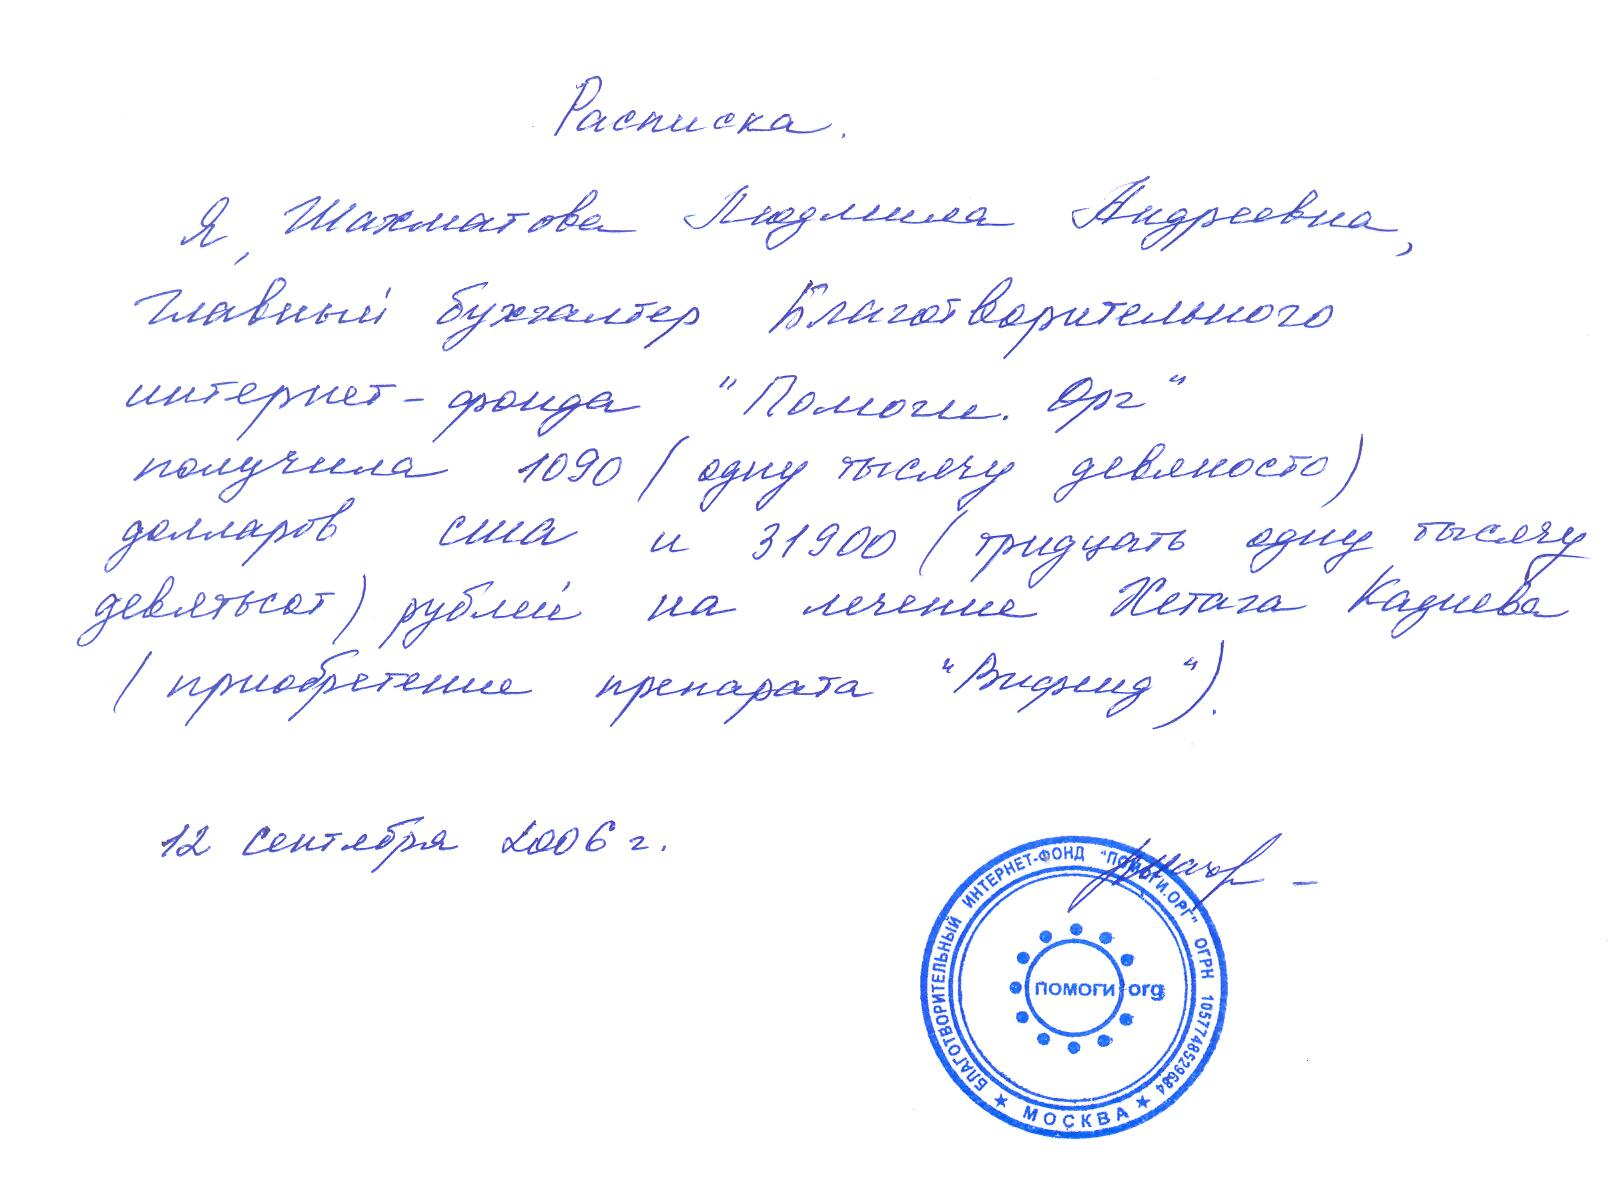 Расписка.
Я, Шахматова Людмила Андреевна,
главный бухгалтер Благотворительного
интернет-фонда "Помоги. Орг"
получила 1090 (одну тысячу девяносто)
долларов США и 31900 (тридцать одну тысячу
девятьсот) рублей на лечение Хетага Кадиева
(приобретение препарата "Вифенд").
12 сентября 2006 г.
БЛАГОТВОРИТЕЛЬНЫЙ ИНТЕРНЕТ-ФОНД "ПОМОГИ.ОРГ" ОГРН 1057748529684
ПОМОГИ org
★ МОСКВА ★